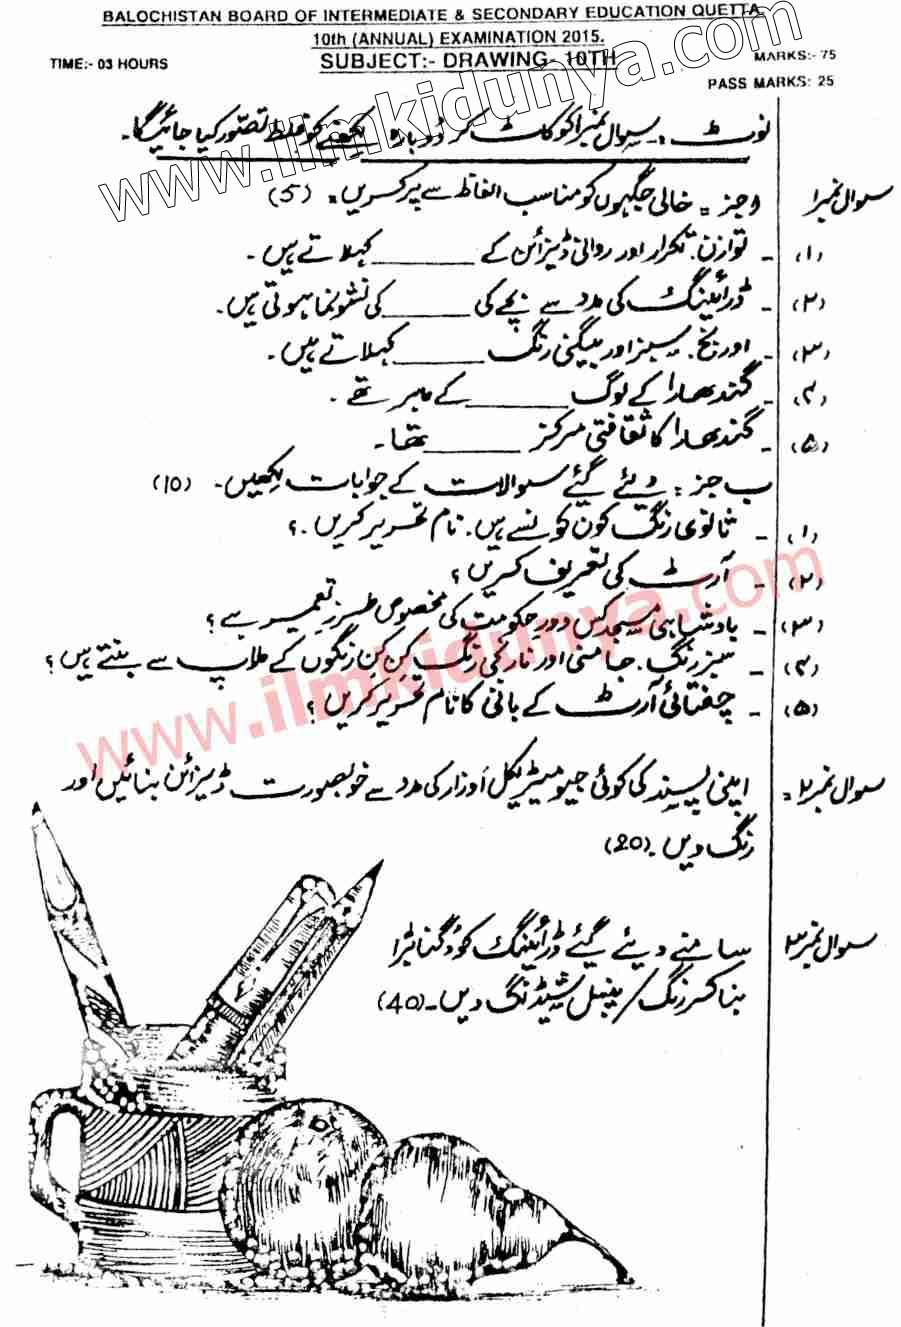 BALOCHISTAN BOARD OF INTERMEDIATE & SECONDARY EDUCATION QUETTA
10th (ANNUAL) EXAMINATION 2015.
TIME:- 03 HOURS SUBJECT:- DRAWING- 10TH MARKS:- 75
PASS MARKS: 25
www.ilmkidunya.com
نوٹ :۔ سوال نمبر ا کو کاٹ کر دُوبارہ لکھنے کو غلط تصوّر کیا جائیگا۔
سوال نمبر ۱ و جز = خالی جگہوں کو مناسب الفاظ سے پر کریں = (5)
(۱) ۔ توازن، تکرار اور روانی ڈیزائن کے ______ کہلاتے ہیں ۔
(۲) ۔ ڈرائینگ کی مدد سے بچے کی ______ کی نشونما ہوتی ہیں۔
(۳) ۔ اورنج، سبز اور بیگنی رنگ ______ کہلاتے ہیں۔
(۴) ۔ گندھارا کے لوگ ______ کے ماہر تھے ۔
(۵) ۔ گندھارا کا ثقافتی مرکز ______ تھا ۔
ب جز = دیئے گئے سوالات کے جوابات لکھیں ۔ (10)
(۱) ۔ ثانوی رنگ کون کونسے ہیں۔ نام تحریر کریں ۔؟
(۲) ۔ آرٹ کی تعریف کریں ؟
(۳) ۔ بادشاہی مسجد کس دور حکومت کی مخصوص طرز تعمیر ہے ؟
(۴) ۔ سبز رنگ، جامنی اور نارنجی رنگ کن کن رنگوں کے ملاپ سے بنتے ہیں ؟
(۵) ۔ چغتائی آرٹ کے بانی کا نام تحریر کریں ؟
www.ilmkidunya.com
سوال نمبر ۲ = اپنی پسند کی کوئی جیومیٹریکل اوزار کی مدد سے خوبصورت ڈیزائن بنائیں اور
رنگ دیں ۔ (20)
سوال نمبر ۳ سامنے دیئے گئے ڈرائینگ کو دُگنا بڑا
بنا کر رنگ / پینسل شیڈنگ دیں ۔ (40)